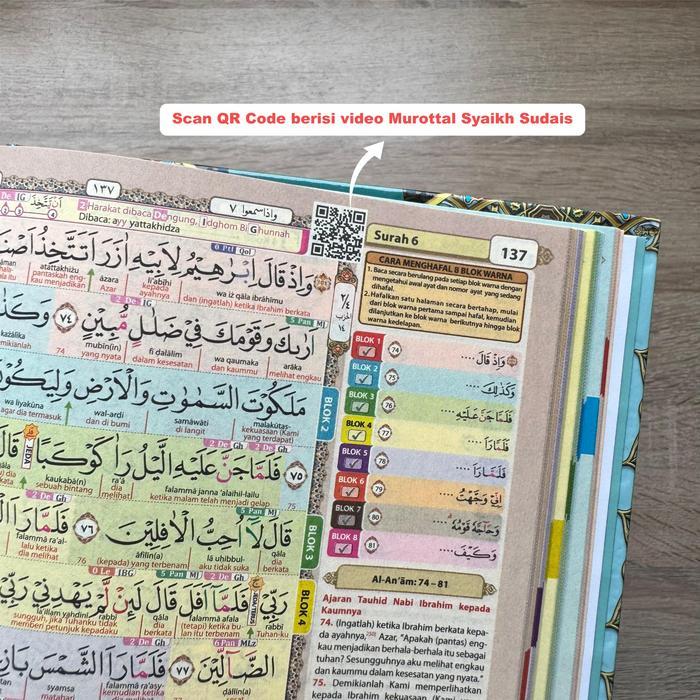 Scan QR Code berisi video Murottal Syaikh Sudais
١٣٧
واذاسمعوا ٧
2 Harakat dibaca Dengung, Idghom Bi Ghunnah
Dibaca: ayy yattakhidza
Surah 6
137
CARA MENGHAFAL 8 BLOK WARNA
1. Baca secara berulang pada setiap blok warna dengan
mengetahui awal ayat dan nomor ayat yang sedang
dihafal.
2. Hafalkan satu halaman secara bertahap, mulai
dari blok warna pertama sampai hafal, kemudian
dilanjutkan ke blok warna berikutnya hingga blok
warna kedelapan.
BLOK 1 74 وَإِذْ قَالَ ....
BLOK 2 75 وَكَذٰلِكَ ....
BLOK 3 76 فَلَمَّاجَنَّ عَلَيْهِ ....
BLOK 4 77 فَلَمَّارَاَ ....
BLOK 5 78 فَلَمَّارَاَ ....
BLOK 6 79 اِنِّيْ وَجَّهْتُ ....
BLOK 7 80 وَحَاۤجَّهٗ قَوْمُهٗ
BLOK 8 81 وَكَيْفَ ....
Al-An'ām: 74 – 81
Ajaran Tauhid Nabi Ibrahim kepada
Kaumnya
74. (Ingatlah) ketika Ibrahim berkata kepa-
da ayahnya, Azar, "Apakah (pantas) eng-
kau menjadikan berhala-berhala itu sebagai
tuhan? Sesungguhnya aku melihat engkau
dan kaummu dalam kesesatan yang nyata."
75. Demikianlah Kami memperlihatkan
kepada Ibrahim kekuasaan (Kami
وَاِذْ قَالَ اِبْرٰهِيْمُ لِاَبِيْهِ اٰزَرَ اَتَتَّخِذُ
wa iż qāla ibrāhīmu li'abīhi āzara atattakhiżu
dan (ingatlah) ketika Ibrahim berkata kepada ayahnya Azar pantaskah engkau menjadikan
اَرٰىكَ وَقَوْمَكَ فِيْ ضَلٰلٍ مُّبِيْنٍ ٧٤
arāka wa qaumaka fī ḍalālim mubīn(in) 74
melihat engkau dan kaummu dalam kesesatan yang nyata
BLOK 2
مَلَكُوْتَ السَّمٰوٰتِ وَالْاَرْضِ وَلِيَكُوْنَ
malakūtas- samāwāti wal-ardi wa liyakūna
kekuasaan (Kami yang terdapat) di langit dan di bumi agar dia termasuk
٧٥ فَلَمَّاجَنَّ عَلَيْهِ الَّيْلُ رَاٰ كَوْكَبًا قَالَ
75 falammā janna 'alaihil-lailu ra'ā kaukabā(n)
ketika malam telah menjadi gelap dia melihat sebuah bintang
قَالَ لَآ اُحِبُّ الْاٰفِلِيْنَ ٧٦ فَلَمَّا رَاَ
qāla lā uhibbul- āfilīn(a) 76 falammā ra'al-
dia berkata aku tidak suka (kepada) yang terbenam lalu ketika dia melihat
BLOK 3
رَبِّيْ فَلَمَّآ اَفَلَ قَالَ لَىِٕنْ لَّمْ يَهْدِنِيْ رَبِّيْ
rabbī
Tuhan-ku tetapi ketika bulan itu terbenam dia berkata sungguh, jika Tuhanku tidak memberi petunjuk kepadaku
BLOK 4
الضَّاۤلِّيْنَ ٧٧ فَلَمَّا رَاَ الشَّمْسَ